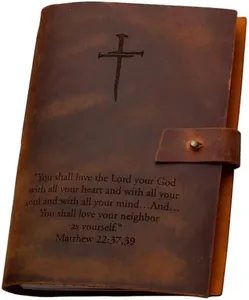 "You shall love the Lord your God
with all your heart and with all your
soul and with all your mind...And...
You shall love your neighbor
as yourself."
Matthew 22:37,39